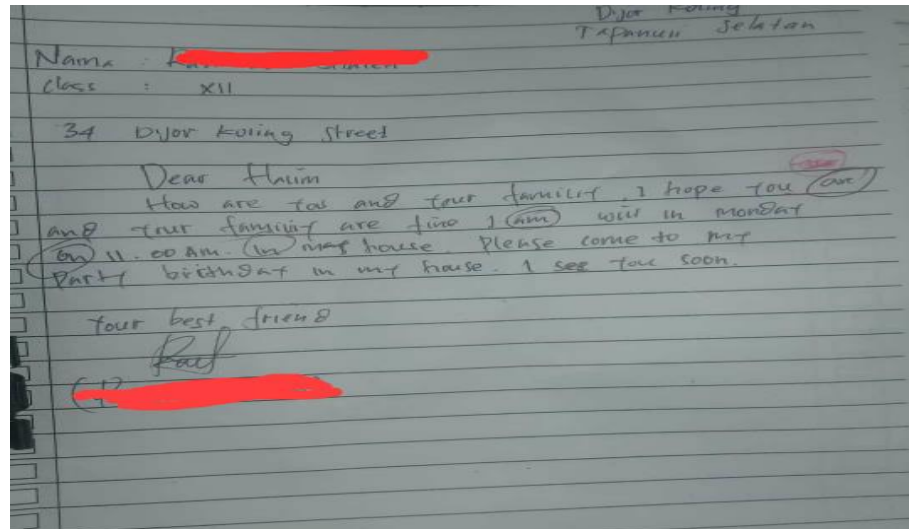 Dijor Koring
Tapanuli Selatan
Nama :
Class : XII
34 Dijor Koring Street
Dear Halim
How are you and your family. I hope you are
and your family are fine I am will in monday
on 11.00 AM. in my house. Please come to my
Party birthday in my house. I see you soon.
Your best friend